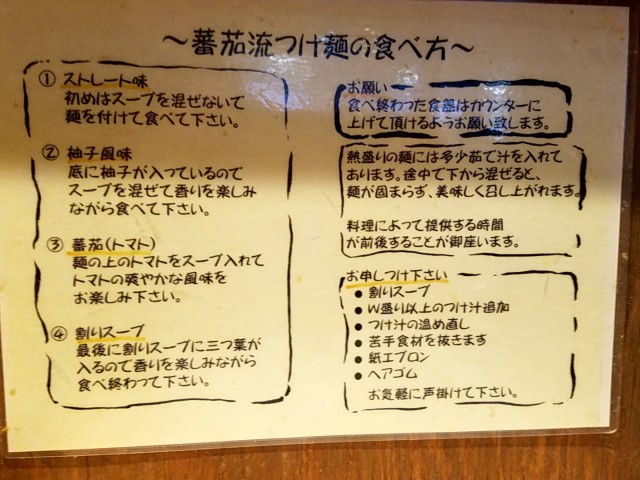 ～蕃茄流つけ麺の食べ方～
① ストレート味
初めはスープを混ぜないで
麺を付けて食べて下さい。
② 柚子風味
底に柚子が入っているので
スープを混ぜて香りを楽しみ
ながら食べて下さい。
③ 蕃茄(トマト)
麺の上のトマトをスープ入れて
トマトの爽やかな風味を
お楽しみ下さい。
④ 割りスープ
最後に割りスープに三つ葉が
入るので香りを楽しみながら
食べ終わって下さい。
お願い
食べ終わった食器はカウンターに
上げて頂けるようお願い致します。
熱盛りの麺には多少茹で汁を入れて
あります。途中で下から混ぜると、
麺が固まらず、美味しく召し上がれます。
料理によって提供する時間
が前後することが御座います。
お申しつけ下さい
● 割りスープ
● W盛り以上のつけ汁追加
● つけ汁の温め直し
● 苦手食材を抜きます
● 紙エプロン
● ヘアゴム
お気軽に声掛けて下さい。